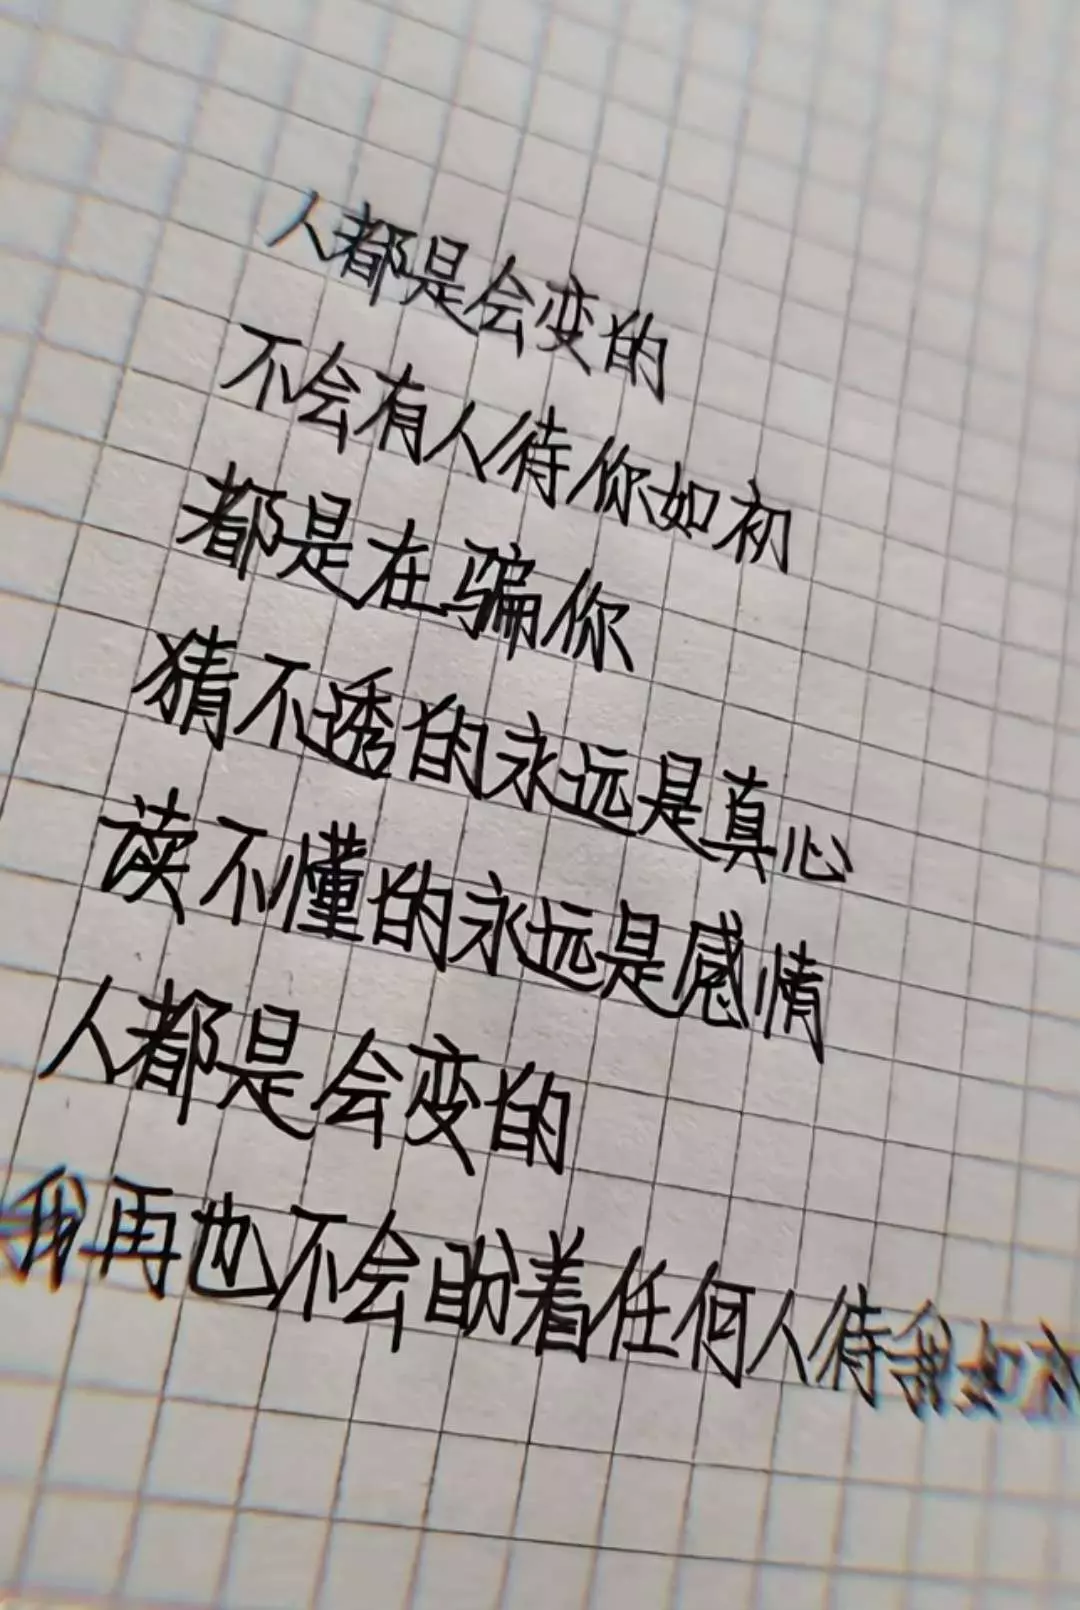 人都是会变的
不会有人待你如初
都是在骗你
猜不透的永远是真心
读不懂的永远是感情
人都是会变的
我再也不会盼着任何人待我如